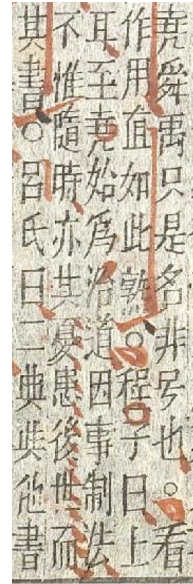 堯舜禹只是名非號也○看
作用直如此孰○程子曰上
耳至堯始爲治道因事制法
不惟隨時亦其憂患後世而
其書○呂氏曰二典與他書